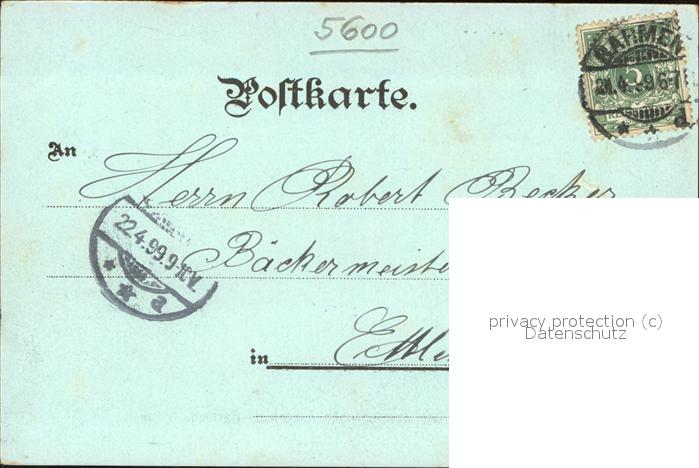 5600
Postkarte.
BARMEN
21.4.99.6-7
a
An Herrn Robert Becker
22.4.99.9-11.V.
a
Bäckermeister
privacy protection (c)
Datenschutz
in